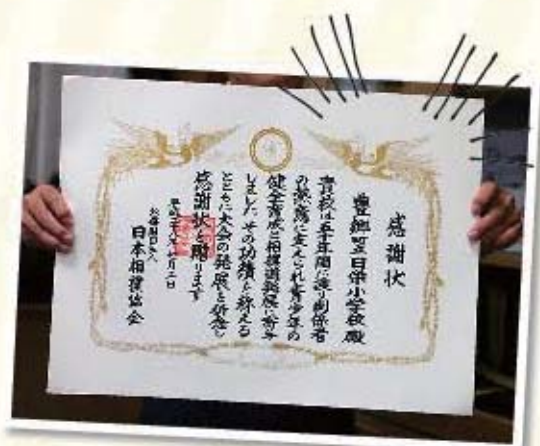 感謝状
豊郷町立日栄小学校殿
貴校は五十年間に渡り関係者
の深篤に支えられ青少年の
健全育成と相撲道発展に寄与
しました その功績を称える
とともに大会の発展を祈念し
感謝状を贈ります
平成二十八年 月 日
公益財団法人
日本相撲協会